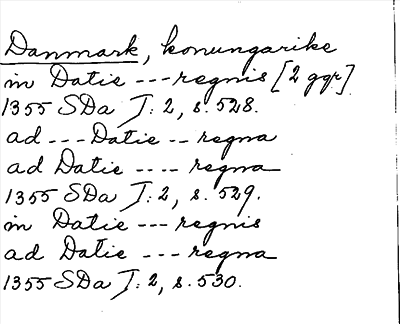 Danmark, konungarike
in Datie --- regnis [2 ggr]
1355 SDa I: 2, s. 528.
ad --- Datie -- regna
ad Datie ---- regna
1355 SDa I: 2, s. 529.
in Datie --- regnis
ad Datie ---- regna
1355 SDa I: 2, s. 530.